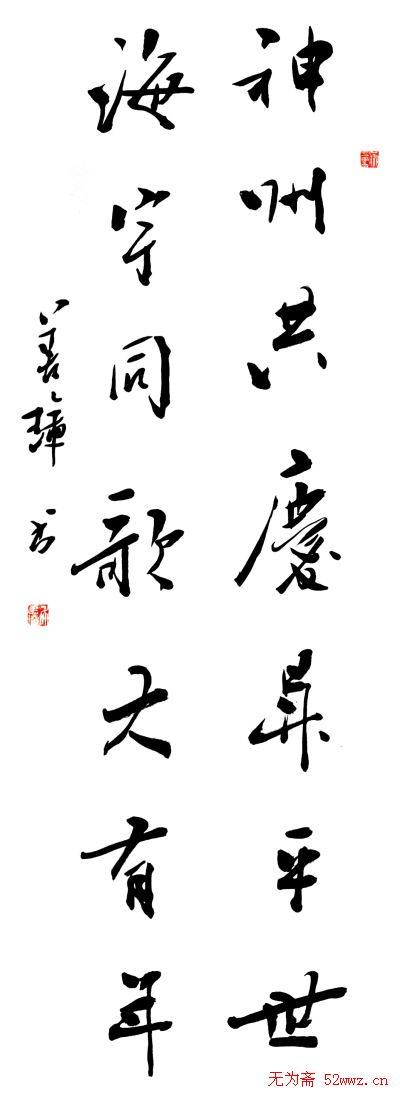 神州共慶昇平世
海宇同歌大有年
善璋书
无为斋 52wwz.cn